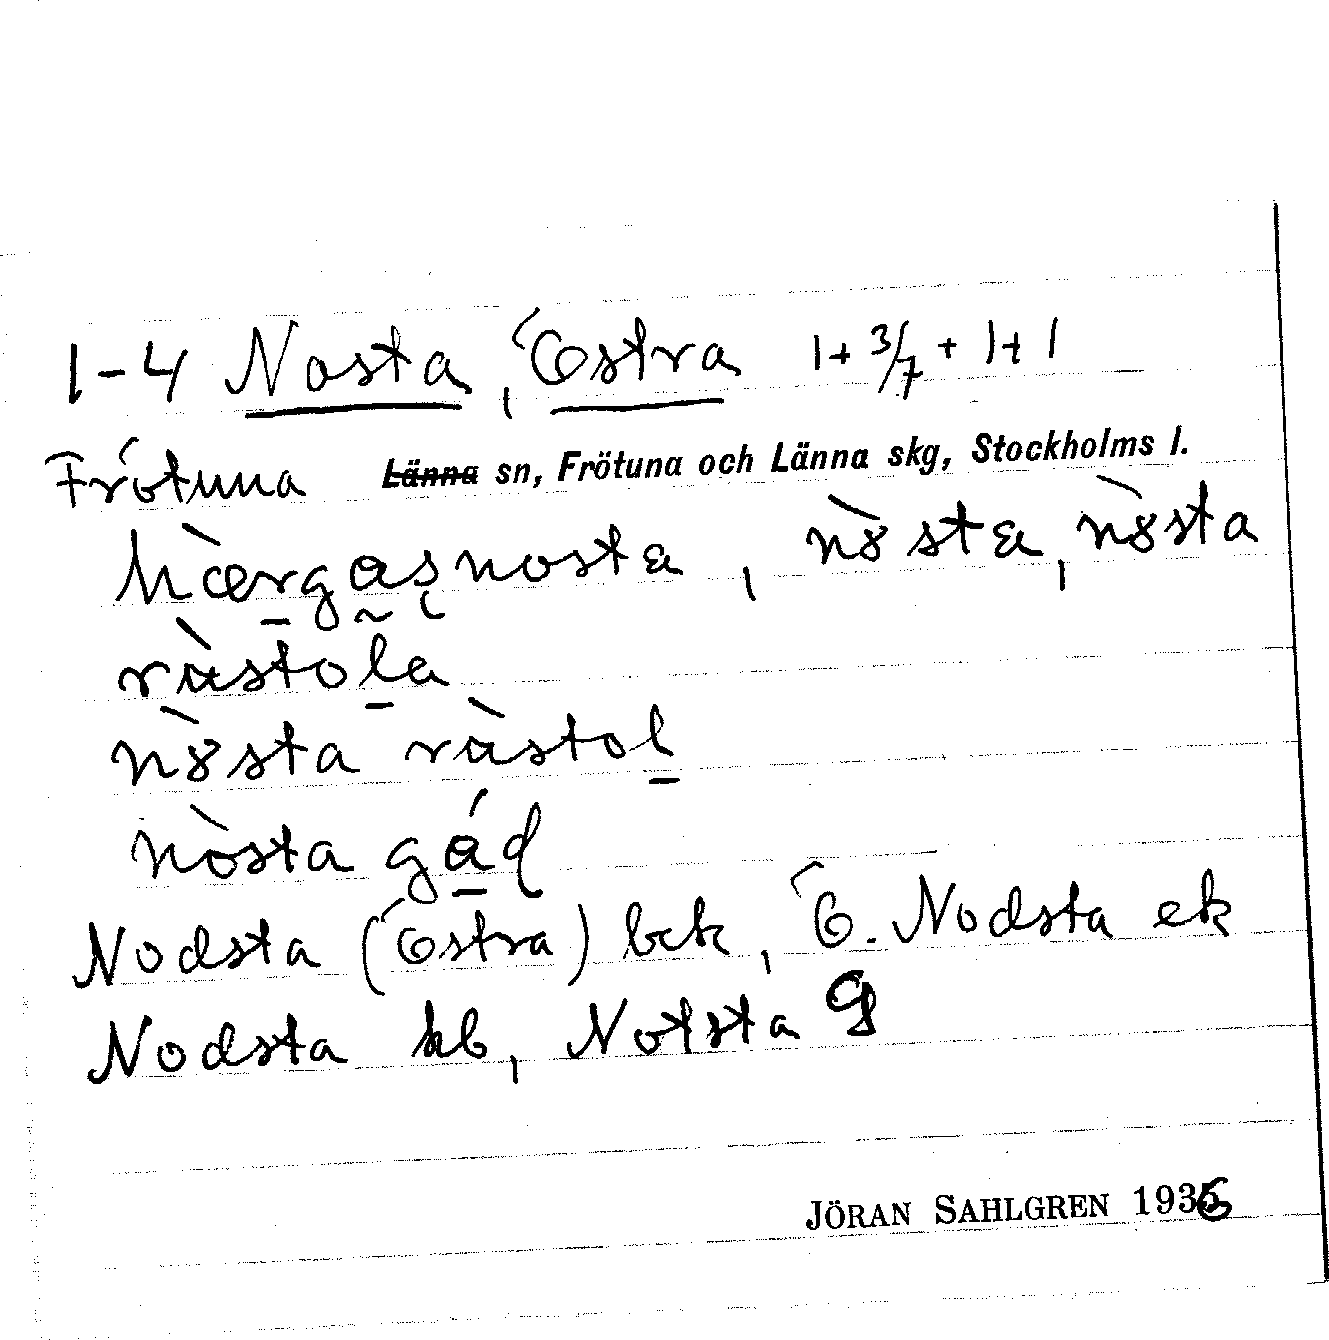 1-4 Nosta, Östra 1+ 3/7 + 1+ 1
Frötuna Länna sn, Frötuna och Länna skg, Stockholms l.
nösta, nösta
ràstola
nösta ràstol
nòsta gád
Nodsta (Östra) bek, Ö. Nodsta ek
Nodsta kb, Notsta G
JÖRAN SAHLGREN 1936